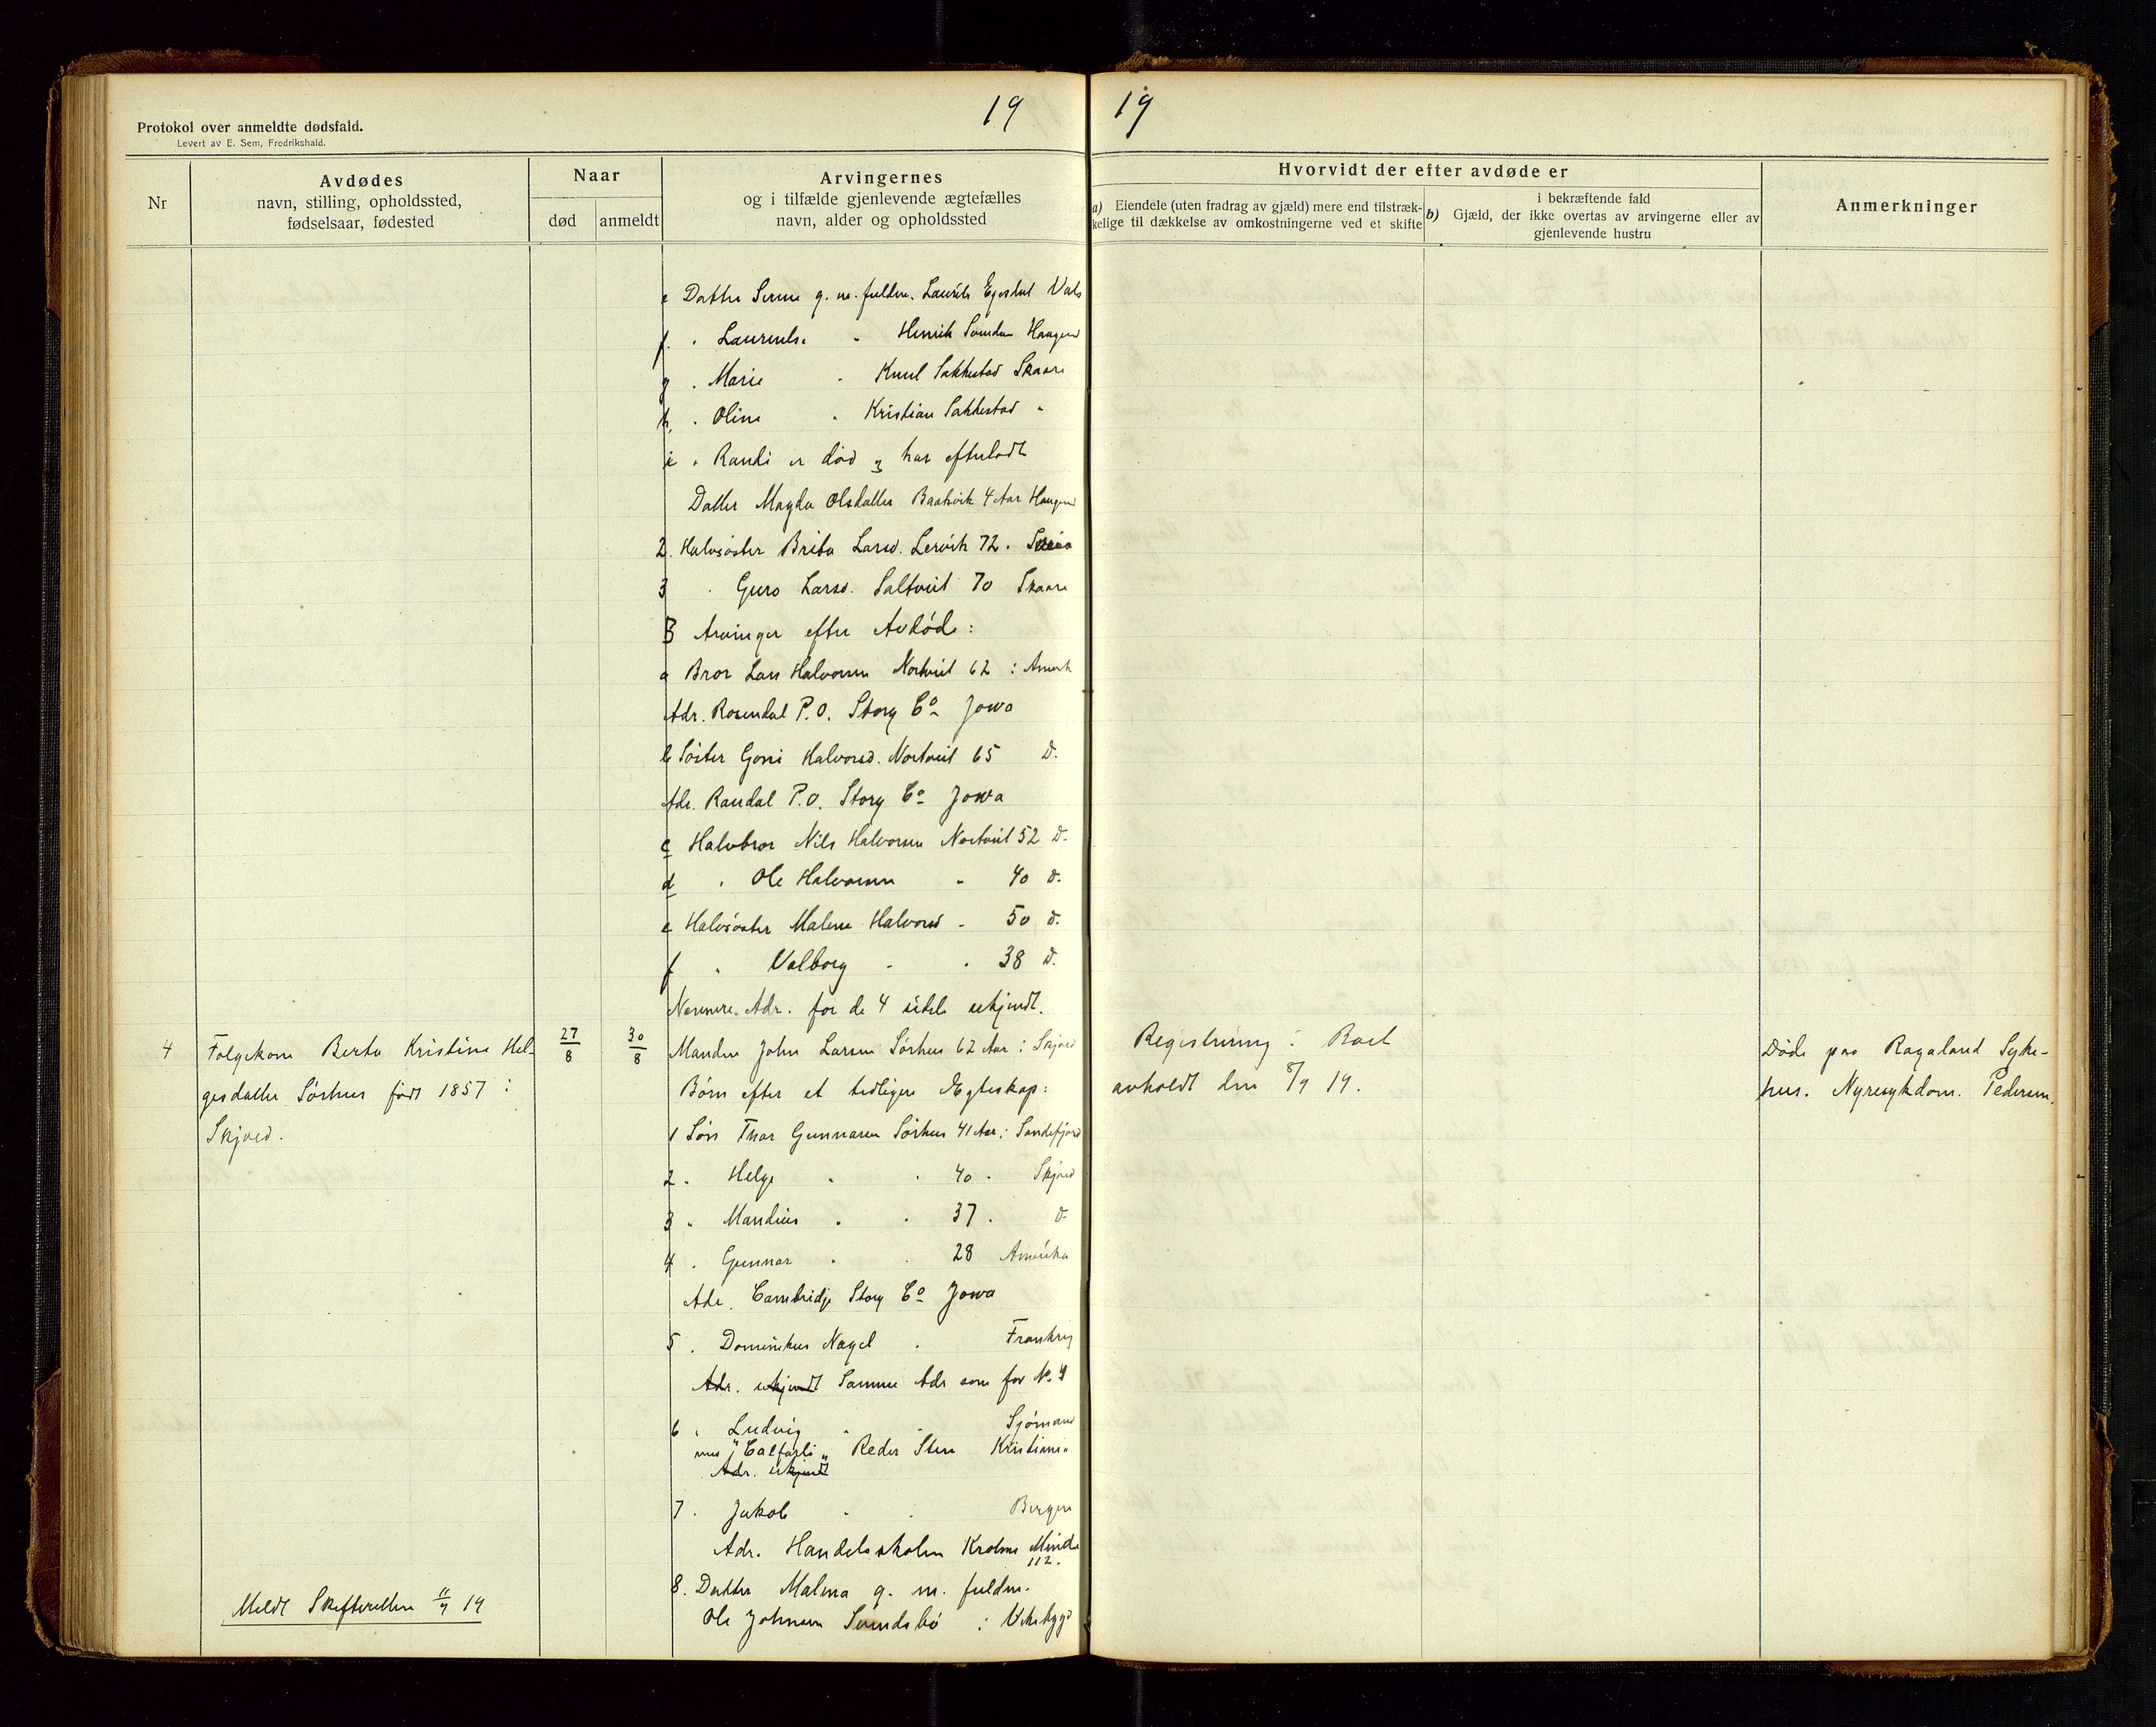 19
19
Protokol over anmeldte dødsfald.
Levert av E. Sem, Fredrikshald.
Nr
Avdødes
navn, stilling, opholdssted,
fødselsaar, fødested
Naar
død
anmeldt
Arvingernes
og i tilfælde gjenlevende ægtefælles
navn, alder og opholdssted
Hvorvidt der efter avdøde er
a) Eiendele (uten fradrag av gjæld) mere end tilstræk-
kelige til dækkelse av omkostningerne ved et skifte
i bekræftende fald
b) Gjæld, der ikke overtas av arvingerne eller av
gjenlevende hustru
Anmerkninger
e Datter Serine g. m. fuldm. Laurits Egeskul Vats
f. " Laurentse " Henrik Haugesd
g " Marie " Knut Sakkestad Skaare
h. " Oline " Kristian Sakkestad "
i " Randi er død og har efterladt
Datter Magda Olsdatter Baatsvik 4 Aar Haugesd
2. Halvsøster Brita Larsd. Lervik 72.
3 " Guro Larsd. Saltveit 70 Skaare
B Arvinger efter Avdøde:
a Bror Lars Halvorsen Nortveit 62 : Amerk
Adr. Rosendal P.O. Story Co Jowa
b Søster Goni Halvorsd. Nortveit 65 D.
Adr. Randal P.O. Story Co Jowa
c Halvbror Nils Halvorsen Nortveit 52 D.
d " Ole Halvorsen " 40 D.
e Halvsøster Malene Halvorsd " 50 D.
f " Valborg " " 38 D.
Nærmere Adr. for de 4 sidste ukjendt.
4
Folgekone Berta Kristine Hel-
gesdatter Sørhus født 1857 i
Skjold.
27/8
30/8
Manden John Larsen Sørhus 62 Aar i Skjold
Børn efter et tidligere Ægteskap:
1 Søn Ivar Gunnarsen Sørhus 41 Aar i Sandefjord
2 " Helge " " 40 " Skjold
3 " Mandius " " 37 " D
4 " Gunnar " " 28 Amerika
Adr. Cambridje Story Co Jowa
5 " Dominikus Nagel " Frankrig
Adr. ukjendt Samme Adr som for No 4
6 " Ludvig " " Sjømand
med "Calfarli" Reder Sten Kristiania
Adr. ukjendt
7 " Jakob " " Bergen
Adr. Handelsskolen Minde
112.
8. Datter Malena g. m. fuldm.
Ole Johnsen Sundsbø i Viksbygd
Registrering i Boet
avholdt den 8/9 19.
Døde paa Rogaland Syke-
hus. Nyresykdom. Pedersen.
Meldt Skifteretten 11/9 19